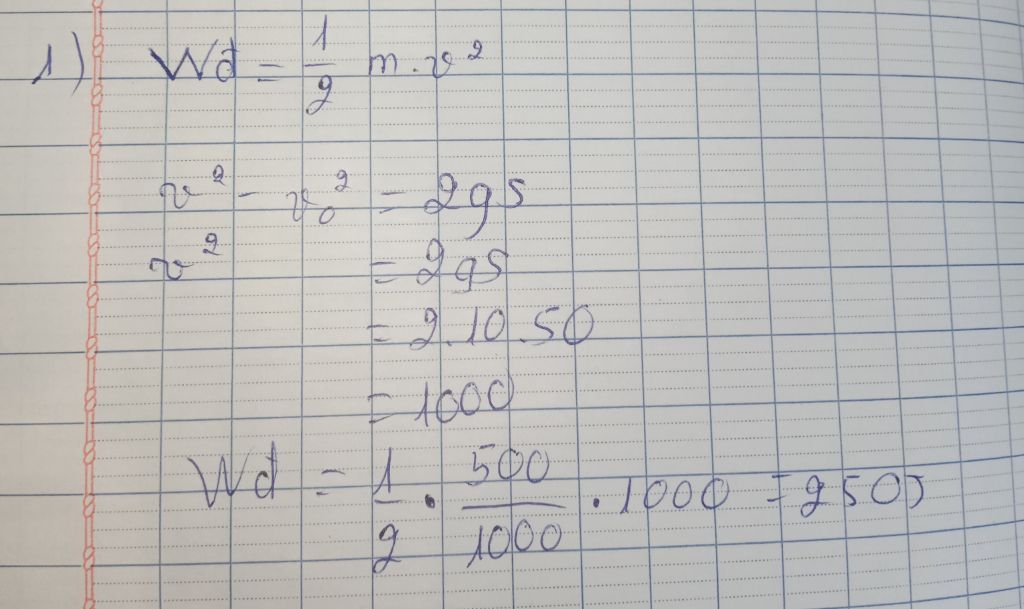 1) Wđ = 1/2 m.v²
v² - v₀² = 2gs
v² = 2gs
= 2.10.50
= 1000
Wđ = 1/2 . 500/1000 . 1000 = 250J